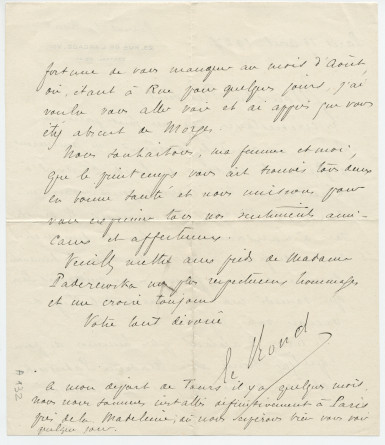 fortune de vous manquer au mois d'Août
où, étant à Rue pour quelques jours, j'ai
voulu vous aller voir et ai appris que vous
étiez absent de Morges.
Nous souhaitons, ma femme et moi,
que le printemps vous ait trouvés tous deux
en bonne santé et nous unissons pour
vous exprimer tous nos sentiments ami-
caux et affectueux.
Veuillez mettre aux pieds de Madame
Paderewska mes plus respectueux hommages
et me croire toujours
Votre tout dévoué
Le Rond
A mon départ de Tours il y a quelques mois,
nous nous sommes installés définitivement à Paris
près de la Madeleine, où nous espérons bien vous voir
quelque jour.
A 432